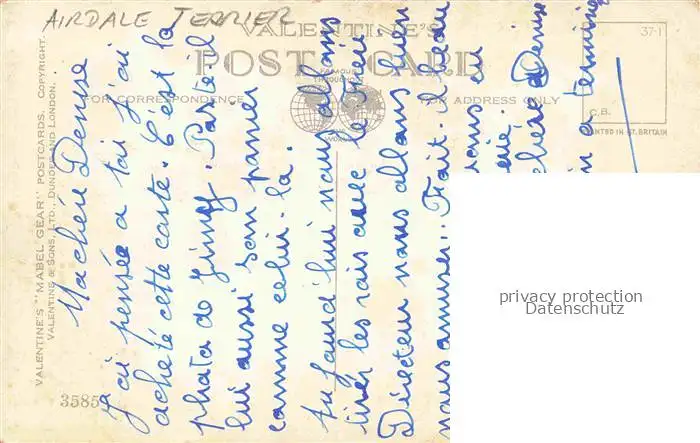 AIRDALE TERRIER
VALENTINE'S
POST CARD
FAMOUS THROUGHOUT
WORLD
FOR CORRESPONDENCE
FOR ADDRESS ONLY
37-1
C.B.
PRINTED IN GT. BRITAIN
VALENTINE'S "MABEL GEAR" POSTCARDS. COPYRIGHT.
VALENTINE & SONS, LTD., DUNDEE AND LONDON.
3585
Ma chérie Denise
J'ai pensée a toi j'ai
acheté cette carte. C'est la
photo de Jimmy. Porte il
lui aussi son panier
comme celui-la.
Aujourd'hui nous allons
tirer les rois avec le Frère
Directeur nous allons bien
nous amuser. Fait-il beau
en
chére Denise
a terminé
privacy protection
Datenschutz